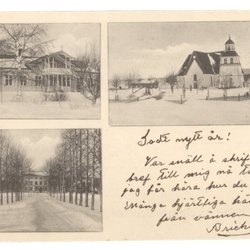 Godt nytt år!
Var snäll å skrif
bref till mig så
jag får höra hur du
Många hjärtliga
från vännen